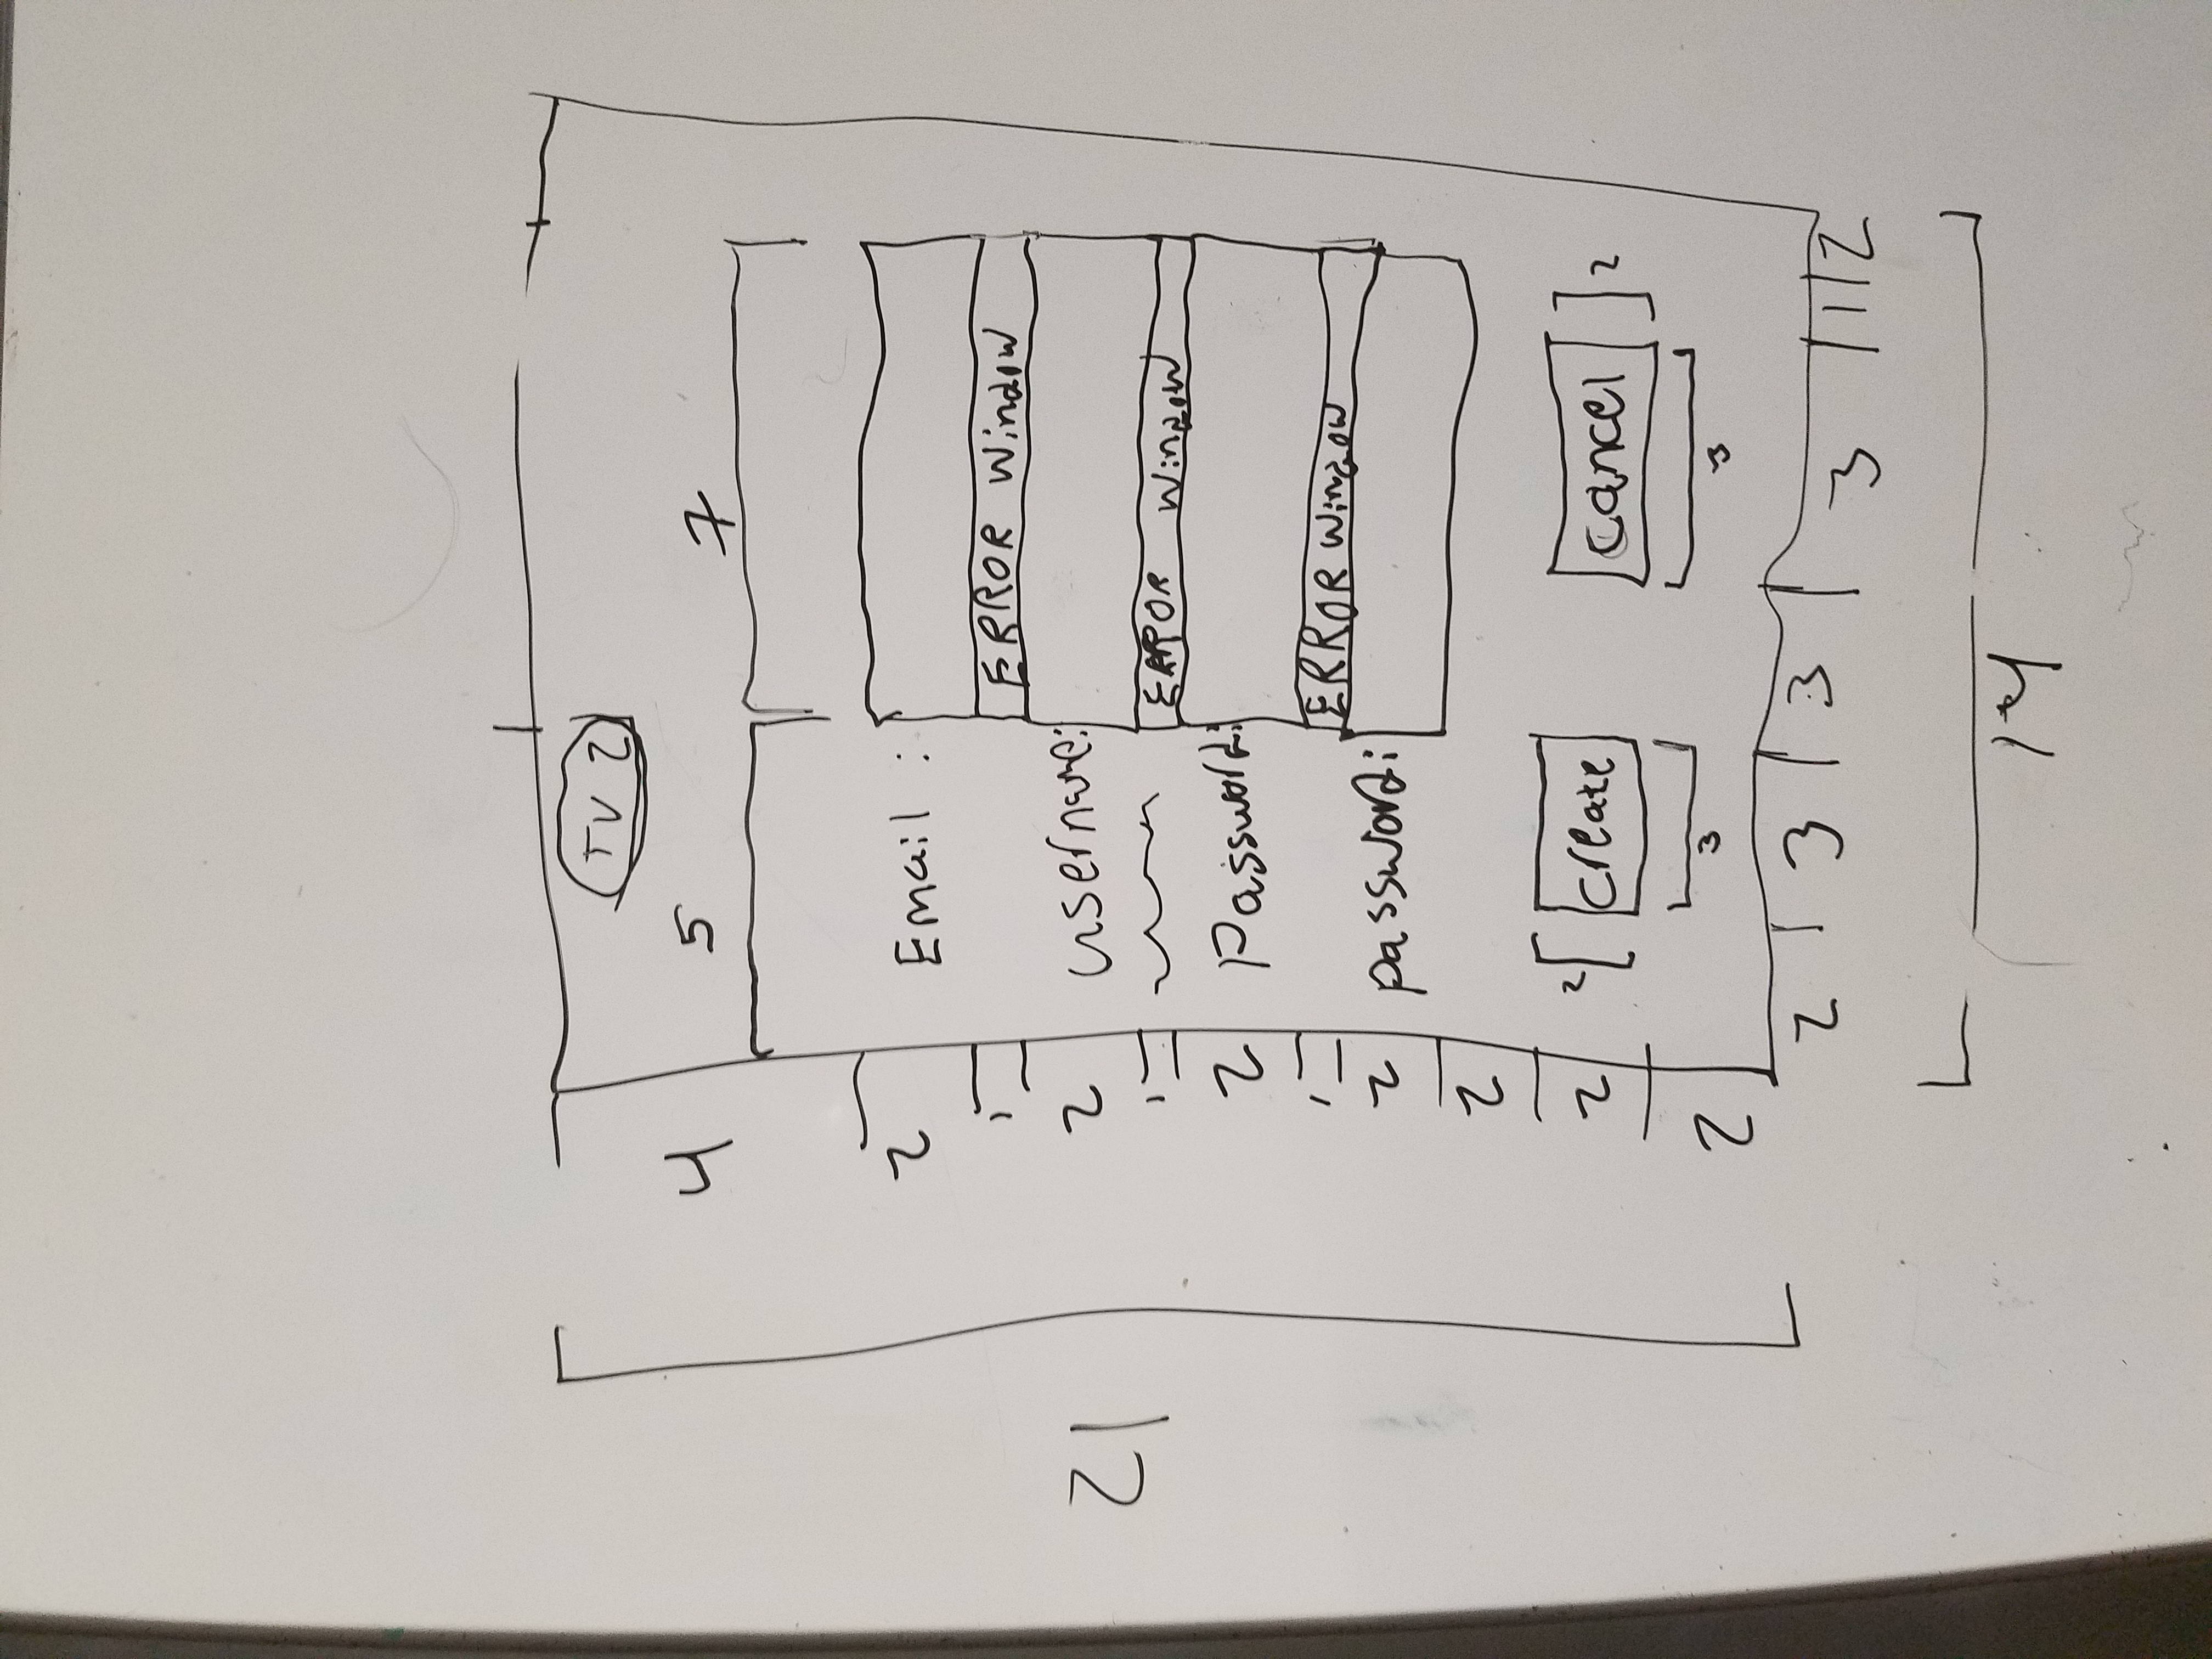 TV 2
4 5 7
2 Email :
1 ERROR Window
21
2 username:
1 ERROR Window
2 Password:
1 ERROR Window
2 password:
2
2 2 create cancel 2
3 3
2
2 3 3 3 1 2
14